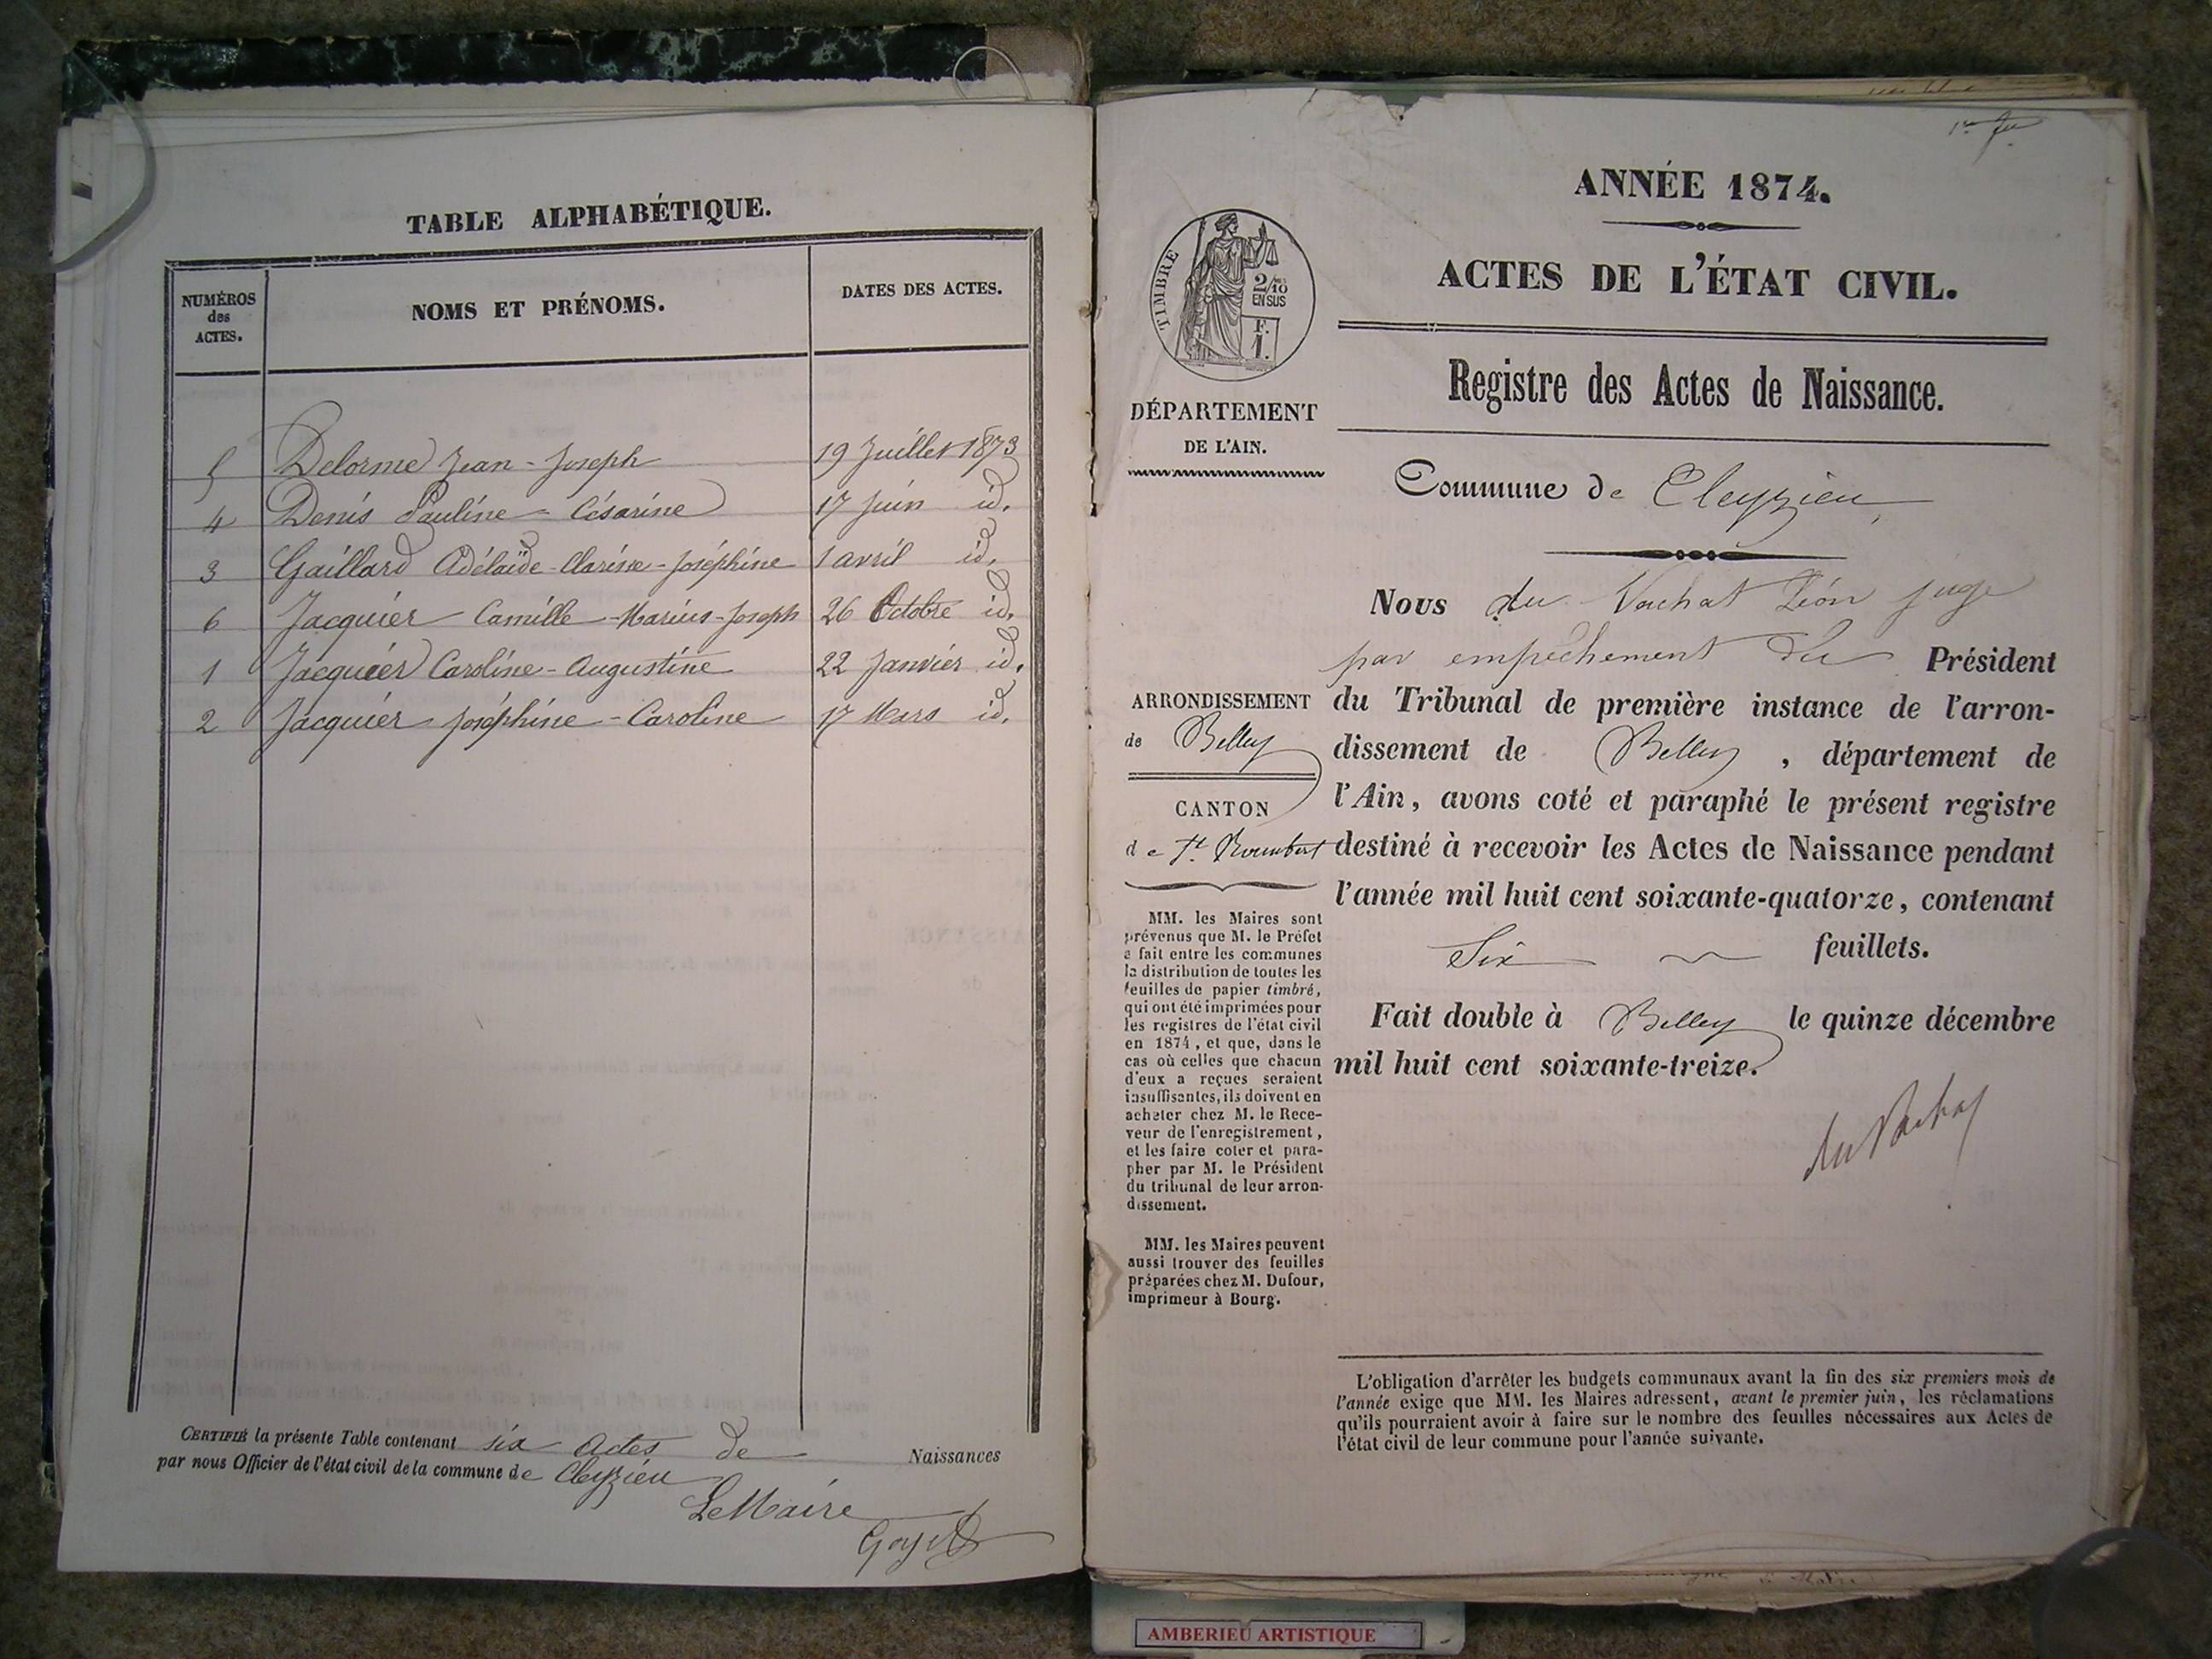 TABLE ALPHABÉTIQUE.
NUMÉROS des ACTES.
NOMS ET PRÉNOMS.
DATES DES ACTES.
5 Delorme Jean-Joseph 19 Juillet 1873
4 Denis Pauline-Césarine 17 Juin id.
3 Gaillard Adélaïde-Clarisse-Joséphine 1 avril id.
6 Jacquier Camille-Marius-Joseph 26 Octobre id.
1 Jacquier Caroline-Augustine 22 Janvier id.
2 Jacquier Joséphine-Caroline 17 Mars id.
CERTIFIÉ la présente Table contenant six Actes de Naissances
par nous Officier de l'état civil de la commune de Cleyzieu
Le Maire
1er
ANNÉE 1874.
ACTES DE L'ÉTAT CIVIL.
TIMBRE
2/10
EN SUS
F.
1.
Registre des Actes de Naissance.
DÉPARTEMENT
DE L'AIN.
Commune de Cleyzieu
Nous du Vachat Léon juge
par empêchement du Président
du Tribunal de première instance de l'arron-
dissement de Belley, département de
l'Ain, avons coté et paraphé le présent registre
destiné à recevoir les Actes de Naissance pendant
l'année mil huit cent soixante-quatorze, contenant
Six feuillets.
Fait double à Belley le quinze décembre
mil huit cent soixante-treize.
du Vachat
ARRONDISSEMENT
de Belley
CANTON
de St. Rambert
MM. les Maires sont
prévenus que M. le Préfet
a fait entre les communes
la distribution de toutes les
feuilles de papier timbré,
qui ont été imprimées pour
les registres de l'état civil
en 1874, et que, dans le
cas où celles que chacun
d'eux a reçues seraient
insuffisantes, ils doivent en
acheter chez M. le Rece-
veur de l'enregistrement,
et les faire coter et para-
pher par M. le Président
du tribunal de leur arron-
dissement.
MM. les Maires peuvent
aussi trouver des feuilles
préparées chez M. Dufour,
imprimeur à Bourg.
L'obligation d'arrêter les budgets communaux avant la fin des six premiers mois de
l'année exige que MM. les Maires adressent, avant le premier juin, les réclamations
qu'ils pourraient avoir à faire sur le nombre des feuilles nécessaires aux Actes de
l'état civil de leur commune pour l'année suivante.
AMBERIEU ARTISTIQUE